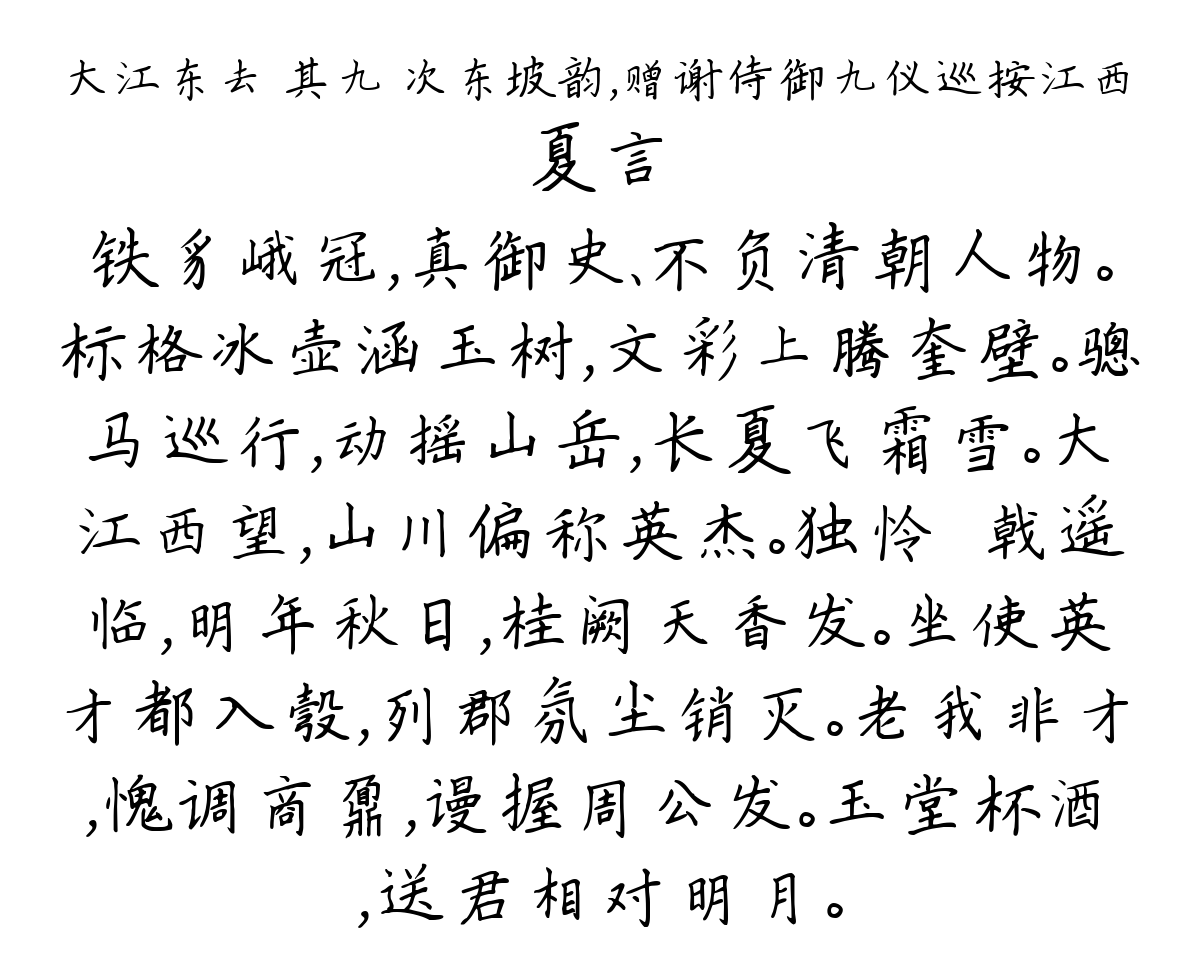 大江东去 其九 次东坡韵,赠谢侍御九仪巡按江西
夏言
铁豸峨冠,真御史、不负清朝人物。
标格冰壶涵玉树,文彩上腾奎壁。骢
马巡行,动摇山岳,长夏飞霜雪。大
江西望,山川偏称英杰。独怜 戟遥
临,明年秋日,桂阙天香发。坐使英
才都入彀,列郡氛尘销灭。老我非才
,愧调商鼐,谩握周公发。玉堂杯酒
,送君相对明月。